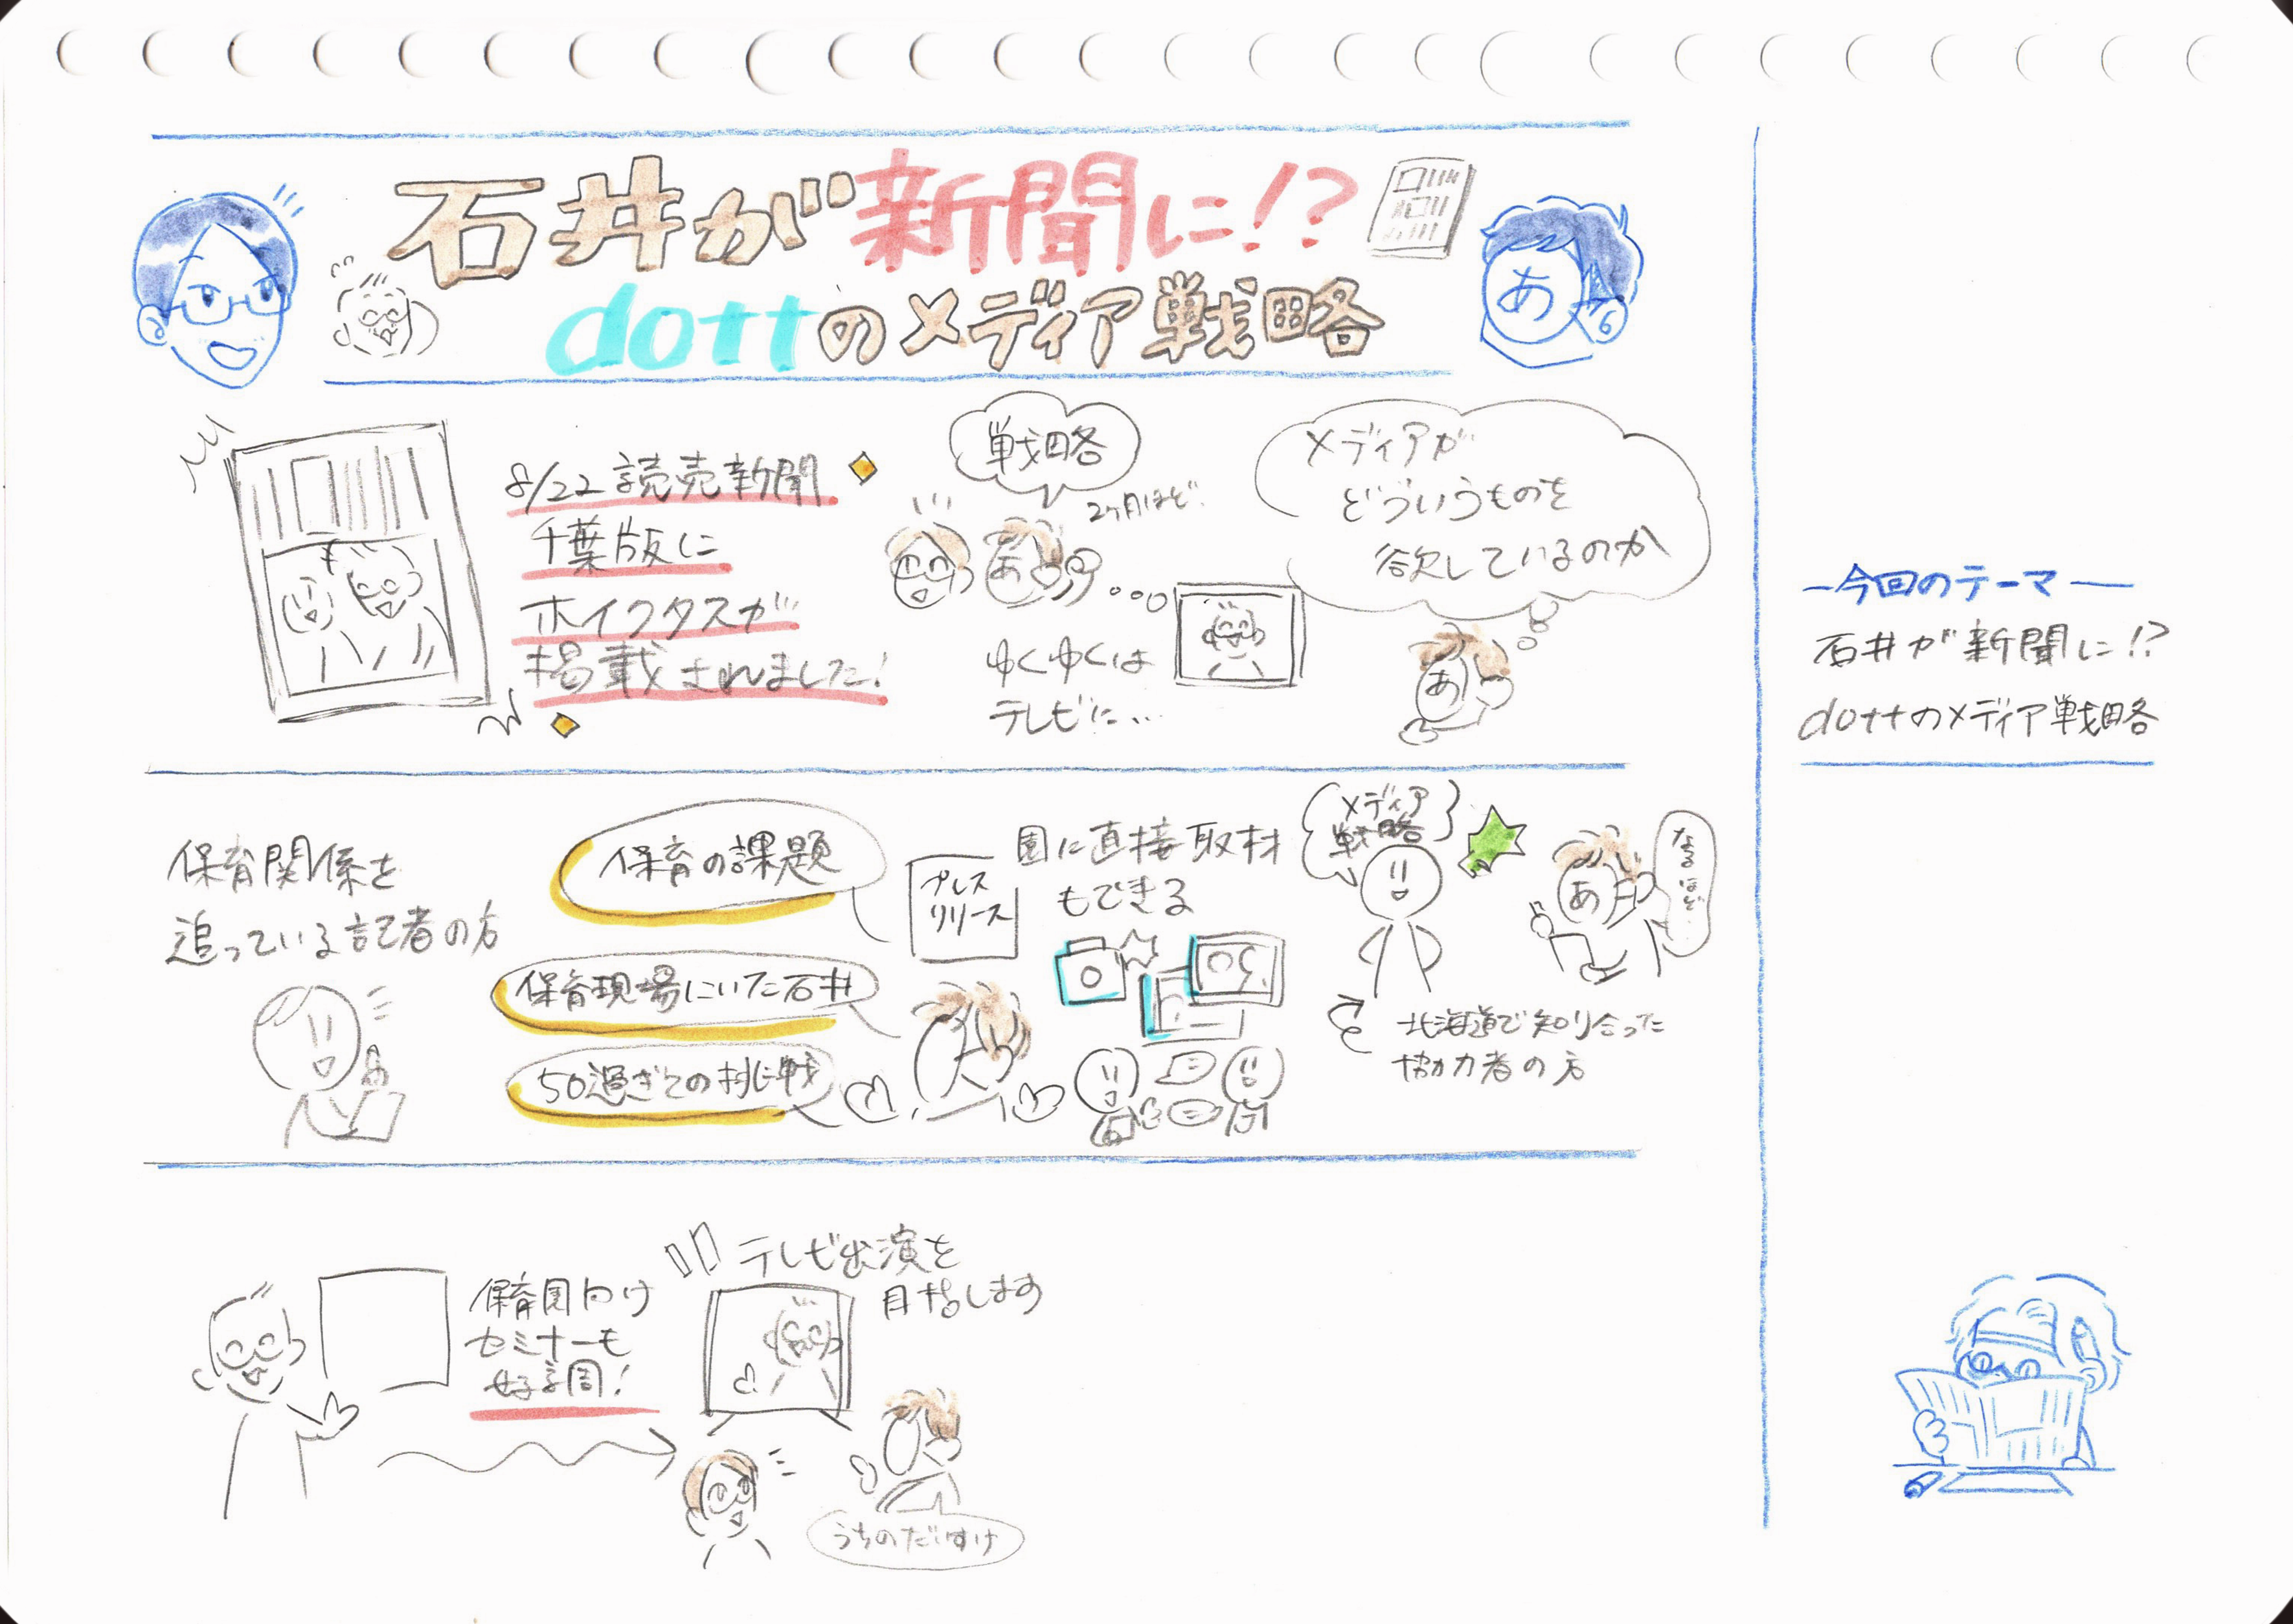 石井が新聞に!?
dottのメディア戦略
あ
8/22 読売新聞
千葉版に
ホイクタスが
掲載されました!
戦略
2ヶ月ほど
あ
ゆくゆくは
テレビに…
メディアが
どういうものを
欲しているのか
あ
保育関係を
追っている記者の方
保育の課題
保育現場にいた石井
50過ぎての挑戦
プレス
リリース
園に直接取材
もできる
メディア
戦略
あ
なるほど…
北海道で知り合った
協力者の方
保育園向け
セミナーも
好調!
テレビ出演を
目指します
うちのだいすけ
ー今回のテーマー
石井が新聞に!?
dottのメディア戦略